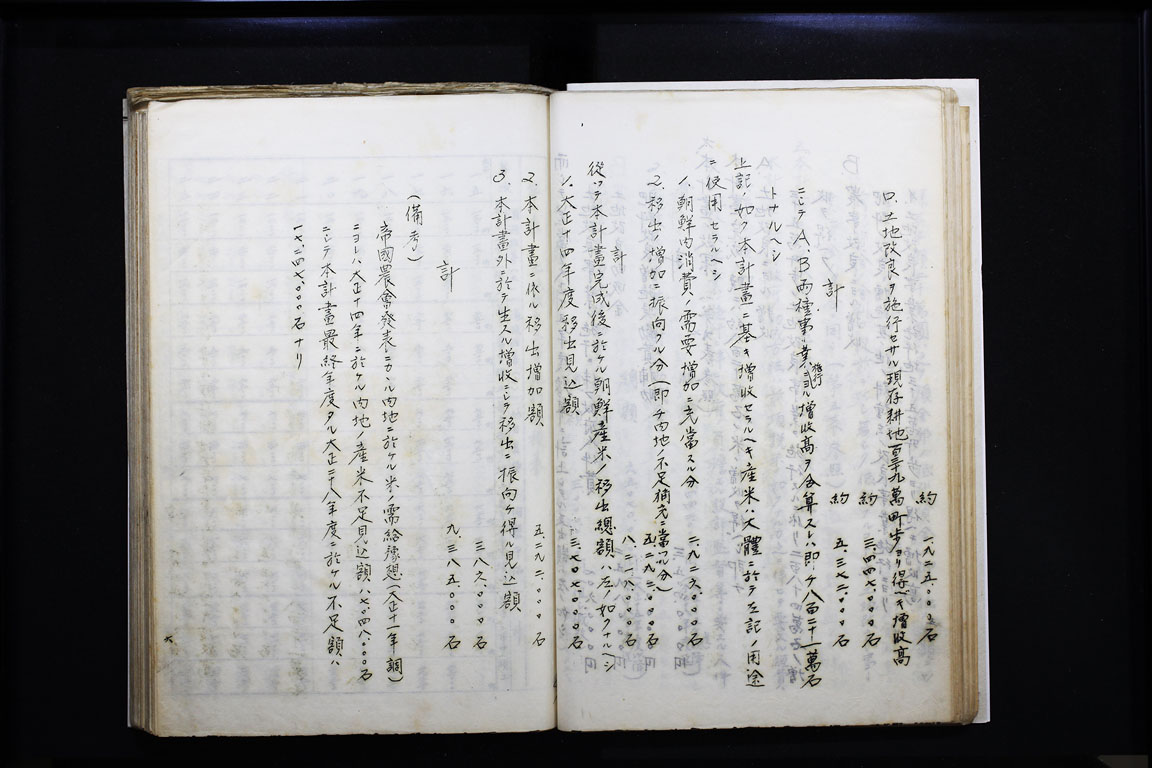 約 一、九二五、〇〇〇石
ロ、土地改良ヲ施行セサル現存耕地百三十九萬町歩ヨリ得ヘキ増收高
約 三、四四七、〇〇〇石
計 約 五、三七二、〇〇〇石
ニシテA、B両種事業施行ニヨル増收高ヲ合算スレハ即チ八百二十一萬石
トナルヘシ
上記ノ如ク本計畫ニ基キ増收セラルヘキ産米ハ大體ニ於テ左記ノ用途
ニ使用セラルヘシ
1. 朝鮮内消費ノ需要増加ニ充當スル分 二、九二六、〇〇〇石
2. 移出ノ増加ニ振向クル分(即チ内地ノ不足補充ニ當ツル分) 五、二九二、〇〇〇石
計 八、二一八、〇〇〇石
從ツテ本計畫完成後ニ於ケル朝鮮産米ノ移出總額ハ左ノ如クナルヘシ
1. 大正十四年度移出見込額 三、七〇七、〇〇〇石
2. 本計畫ニ依ル移出増加額 五、二九二、〇〇〇石
3. 本計畫外ニ於テ生スル増收ニシテ移出ニ振向ケ得ル見込額
三八六、〇〇〇石
計 九、三八五、〇〇〇石
(備考)
帝國農會發表ニカヽル内地ニ於ケル米ノ需給豫想(大正十一年調)
ニヨレハ大正十四年ニ於ケル内地ノ産米不足見込額ハ七、〇四八、〇〇〇石
ニシテ本計畫最終年度タル大正二十八年度ニ於ケル不足額ハ
石ナリ